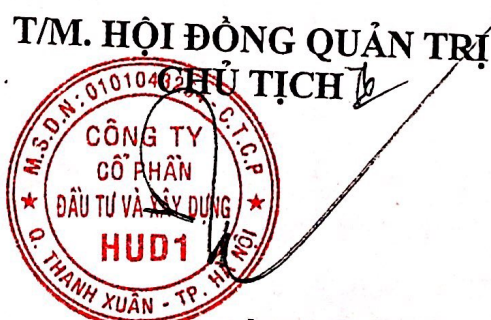 T/M. HỘI ĐỒNG QUẢN TRỊ
CHỦ TỊCH
M.S.D.N: - C.T.C.P
CÔNG TY
CỔ PHẦN
ĐẦU TƯ VÀ XÂY DỰNG
HUD1
Q. THANH XUÂN - TP. HÀ NỘI